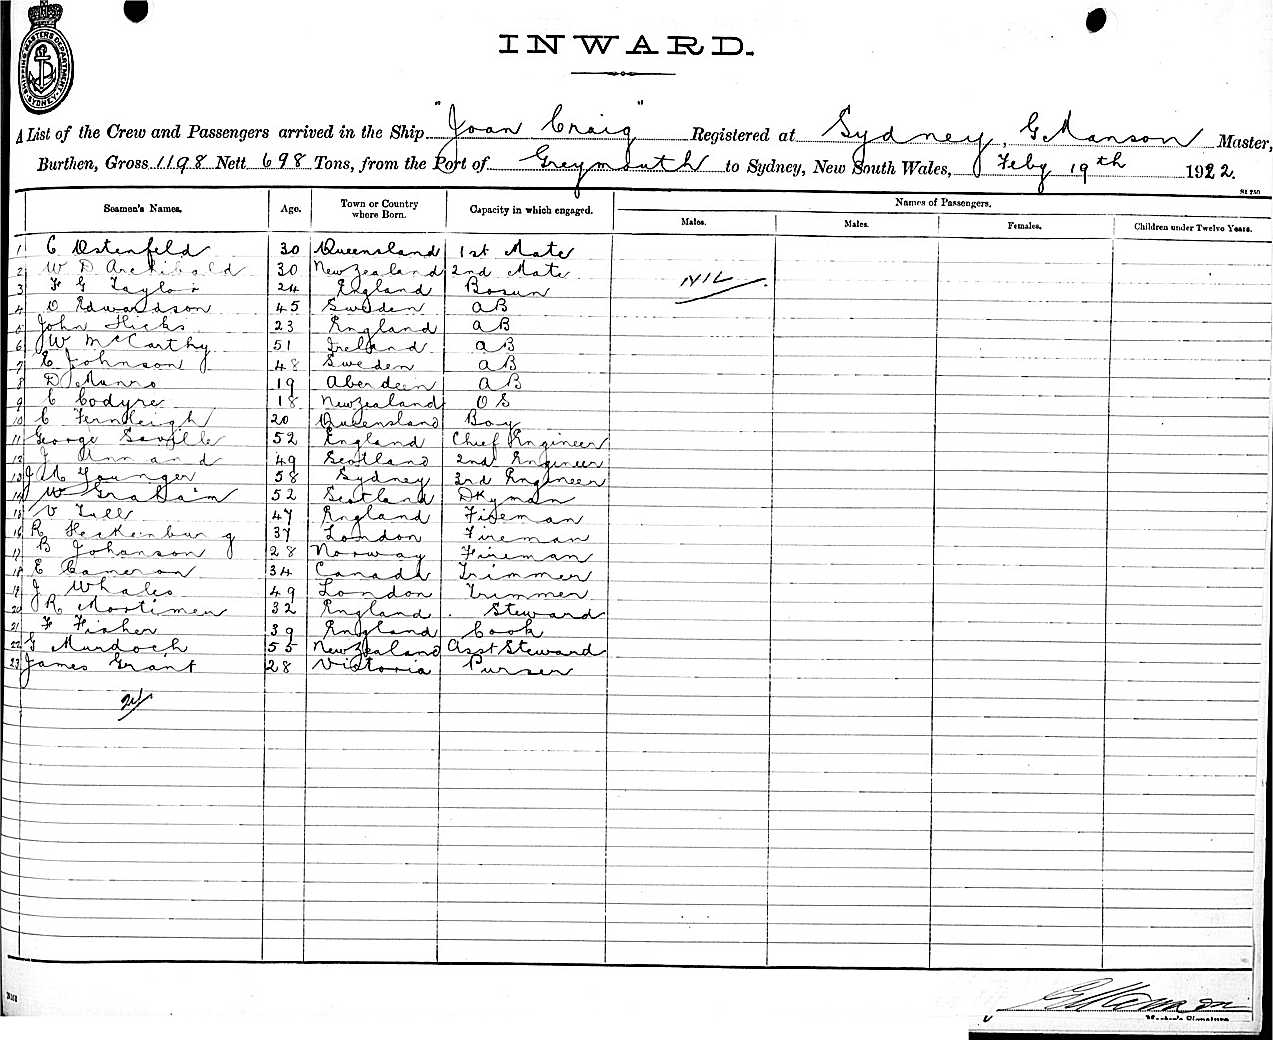 SHIPPING MASTERS DEPARTMENT SYDNEY
INWARD.
A List of the Crew and Passengers arrived in the Ship "Joan Craig" Registered at Sydney, G Manson Master,
Burthen, Gross 1198 Nett 698 Tons, from the Port of Greymouth to Sydney, New South Wales, Feby 19th 1922.
Seamen's Names. Age. Town or Country where Born. Capacity in which engaged. Names of Passengers.
Males. Males. Females. Children under Twelve Years.
1 C Ostenfeld 30 Queensland 1st Mate
2 W D Archibald 30 New Zealand 2nd Mate NIL
3 F G Taylor 24 England Bosun
4 O Edwardson 45 Sweden AB
5 John Hicks 23 England AB
6 W McCarthy 51 Ireland AB
7 E Johnson 48 Sweden AB
8 D Munro 19 Aberdeen AB
9 C Codyre 18 New Zealand OS
10 C Fernleigh 20 Queensland Boy
11 George Saville 52 England Chief Engineer
12 J Annand 49 Scotland 2nd Engineer
13 J M Younger 58 Sydney 3rd Engineer
14 W Graham 52 Scotland Dkyman
15 V Tull 47 England Fireman
16 R Heskenburg 37 London Fireman
17 B Johanson 28 Norway Fireman
18 E Cameron 34 Canada Trimmer
19 J Whales 49 London Trimmer
20 R Mortimer 32 England Steward
21 F Fisher 39 England Cook
22 G Murdoch 55 New Zealand Asst Steward
23 James Grant 28 Victoria Purser
24
G Manson
Master's Signature